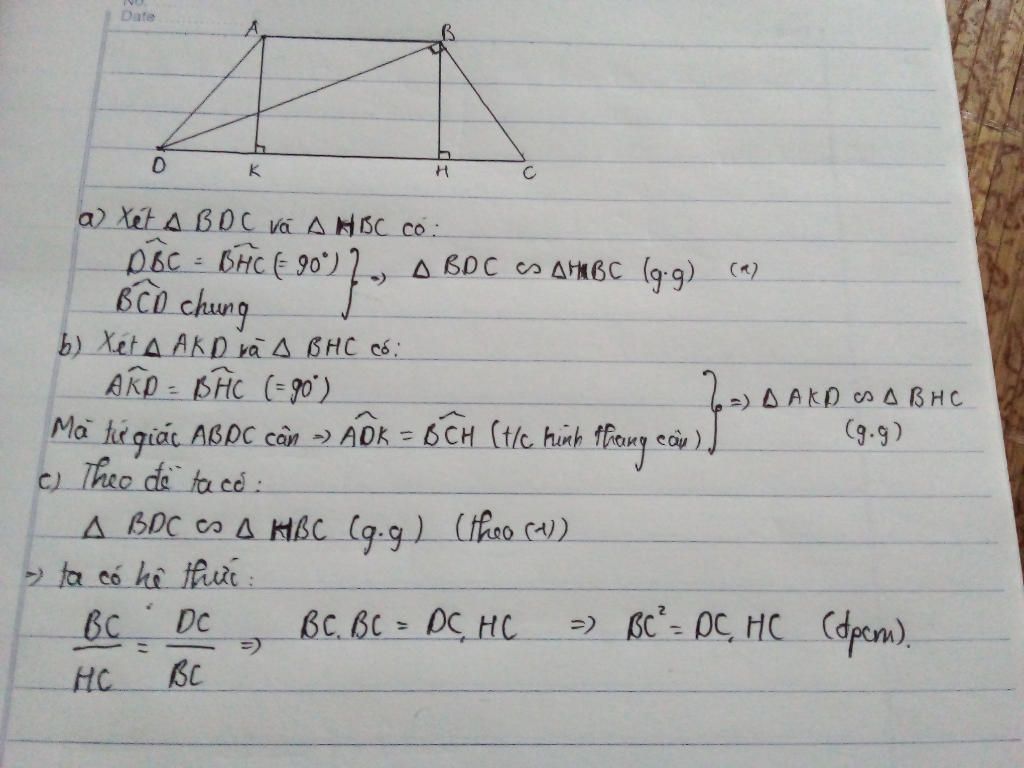 No.
Date
A B
D K H C
a) Xét Δ BDC và Δ HBC có:
DBC = BHC (= 90°) } => Δ BDC ∽ Δ HBC (g.g) (1)
BCD chung
b) Xét Δ AKD và Δ BHC có:
AKD = BHC (= 90°)
Mà tứ giác ABDC cân => ADK = BCH (t/c hình thang cân) } => Δ AKD ∽ Δ BHC
(g.g)
c) Theo đề ta có:
Δ BDC ∽ Δ HBC (g.g) (theo (1))
=> ta có hệ thức:
BC/HC = DC/BC => BC. BC = DC. HC => BC² = DC. HC (đpcm).